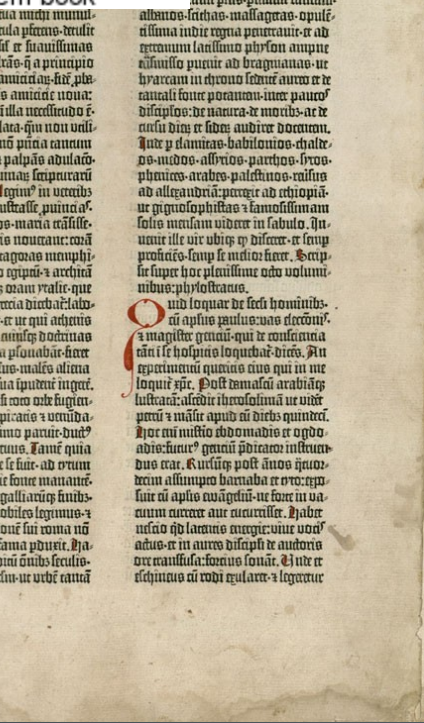 em book
de michi munuſ-
cula ꝑferens·detulit
sił et ſuauiſſimas
r̄as·q̄ a principio
amiciciaꝝ·fidē ꝓba-
s amicicie noua:
a illa neceſſitudo ē·
lata·q̄m non utili-
nō p̄ſencia tantum
⁊ palpās adulacō·
inaꝝ ſcripturarū
egim⁹ in veteribꝫ
uſtraſſe ꝓuincias·
os·maria trāſiſſe·
is nouerant: corā
tagoras memphi-
o egiptū·⁊ architā
oram ytalie·que
recia dicebat᷑·labo-
·et ut qui athenis
cuiuſqꝫ doctrinas
a ꝑſonabāt·fieret
us·malēs aliena
ua īpudent̄ ingerē.
ſi toto orbe fugien-
piratis ⁊ venūda-
imo paruit·duct⁹
eruus. Tamē quia
e ſe fuit· ad tytum
ie fonte manantē·
galliarūqꝫ finibꝫ·
obiles legimus·⁊
onē ſui roma nō
fama ꝑduxit. Ha-
ditū om̄ibꝫ ſeculis·
ſm·ut vrbē tantā
albanos·ſcithas·maſſagetas·opulē-
tiſſima indie regna penetrauit·et ad
extremum latiſſimo phyſon ampne
tᷓſmiſſo puenit ad bragmanas·ut
hyarcam in throno ſedētē aureo et de
tantali fonte potantem·inter paucos
diſcipłos: de natura·de moribꝫ·ac de
curſu dierꝫ et ſideꝝ audiret docentem.
Inde ꝑ elamitas·babilonios·chalde-
os·medos·aſſyrios·parthos·ſyros·
phenices·arabes·paleſtinos·reuſus
ad allexandriā: perrexit ad ethiopiā·
ut gignoſophiſtas ⁊ famoſiſſimam
ſolis menſam videret in ſabulo. In-
uenit ille vir vbiqꝫ qḋ diſceret·et ſemp
proficiēs·ſemp ſe melior fieret. Scrip-
ſit ſuper hoc pleniſſime octo volumi-
nibus: phyloſtratus.
Quid loquar de ſecli hominibꝫ·
cū apłus paulus: vas electōnis·
⁊ magiſter gentiū·qui de conſcientia
tāti ī ſe hoſpitis loquebat᷑·dicēs. An
experimentū queritis eius qui in me
loquit᷑ xp̄c. Poſt demaſcū arabiāqꝫ
luſtratā: aſcēdit iheroſolimā ut vidēt
petrū ⁊ māſit apud eū diebꝫ quindecī.
Hoc enī miſterio ebdomadis et ogdo-
adis: futur⁹ gentiū p̄dicator inſtruen-
dus erat. Rurſūqꝫ poſt ānos q̄tuor-
decim aſſumpto barnaba et tyto: expo-
ſuit cū apłis ewāgeliū·ne forte in va-
cuum curreret aut cucurriſſet. Habet
neſcio qḋ latentis energie: viue vocis
actus·et in aures diſcipłi de auctoris
ore tranſfuſa: forcius ſonāt. Unde et
eſchineus cū rodi exularet·⁊ legeretur